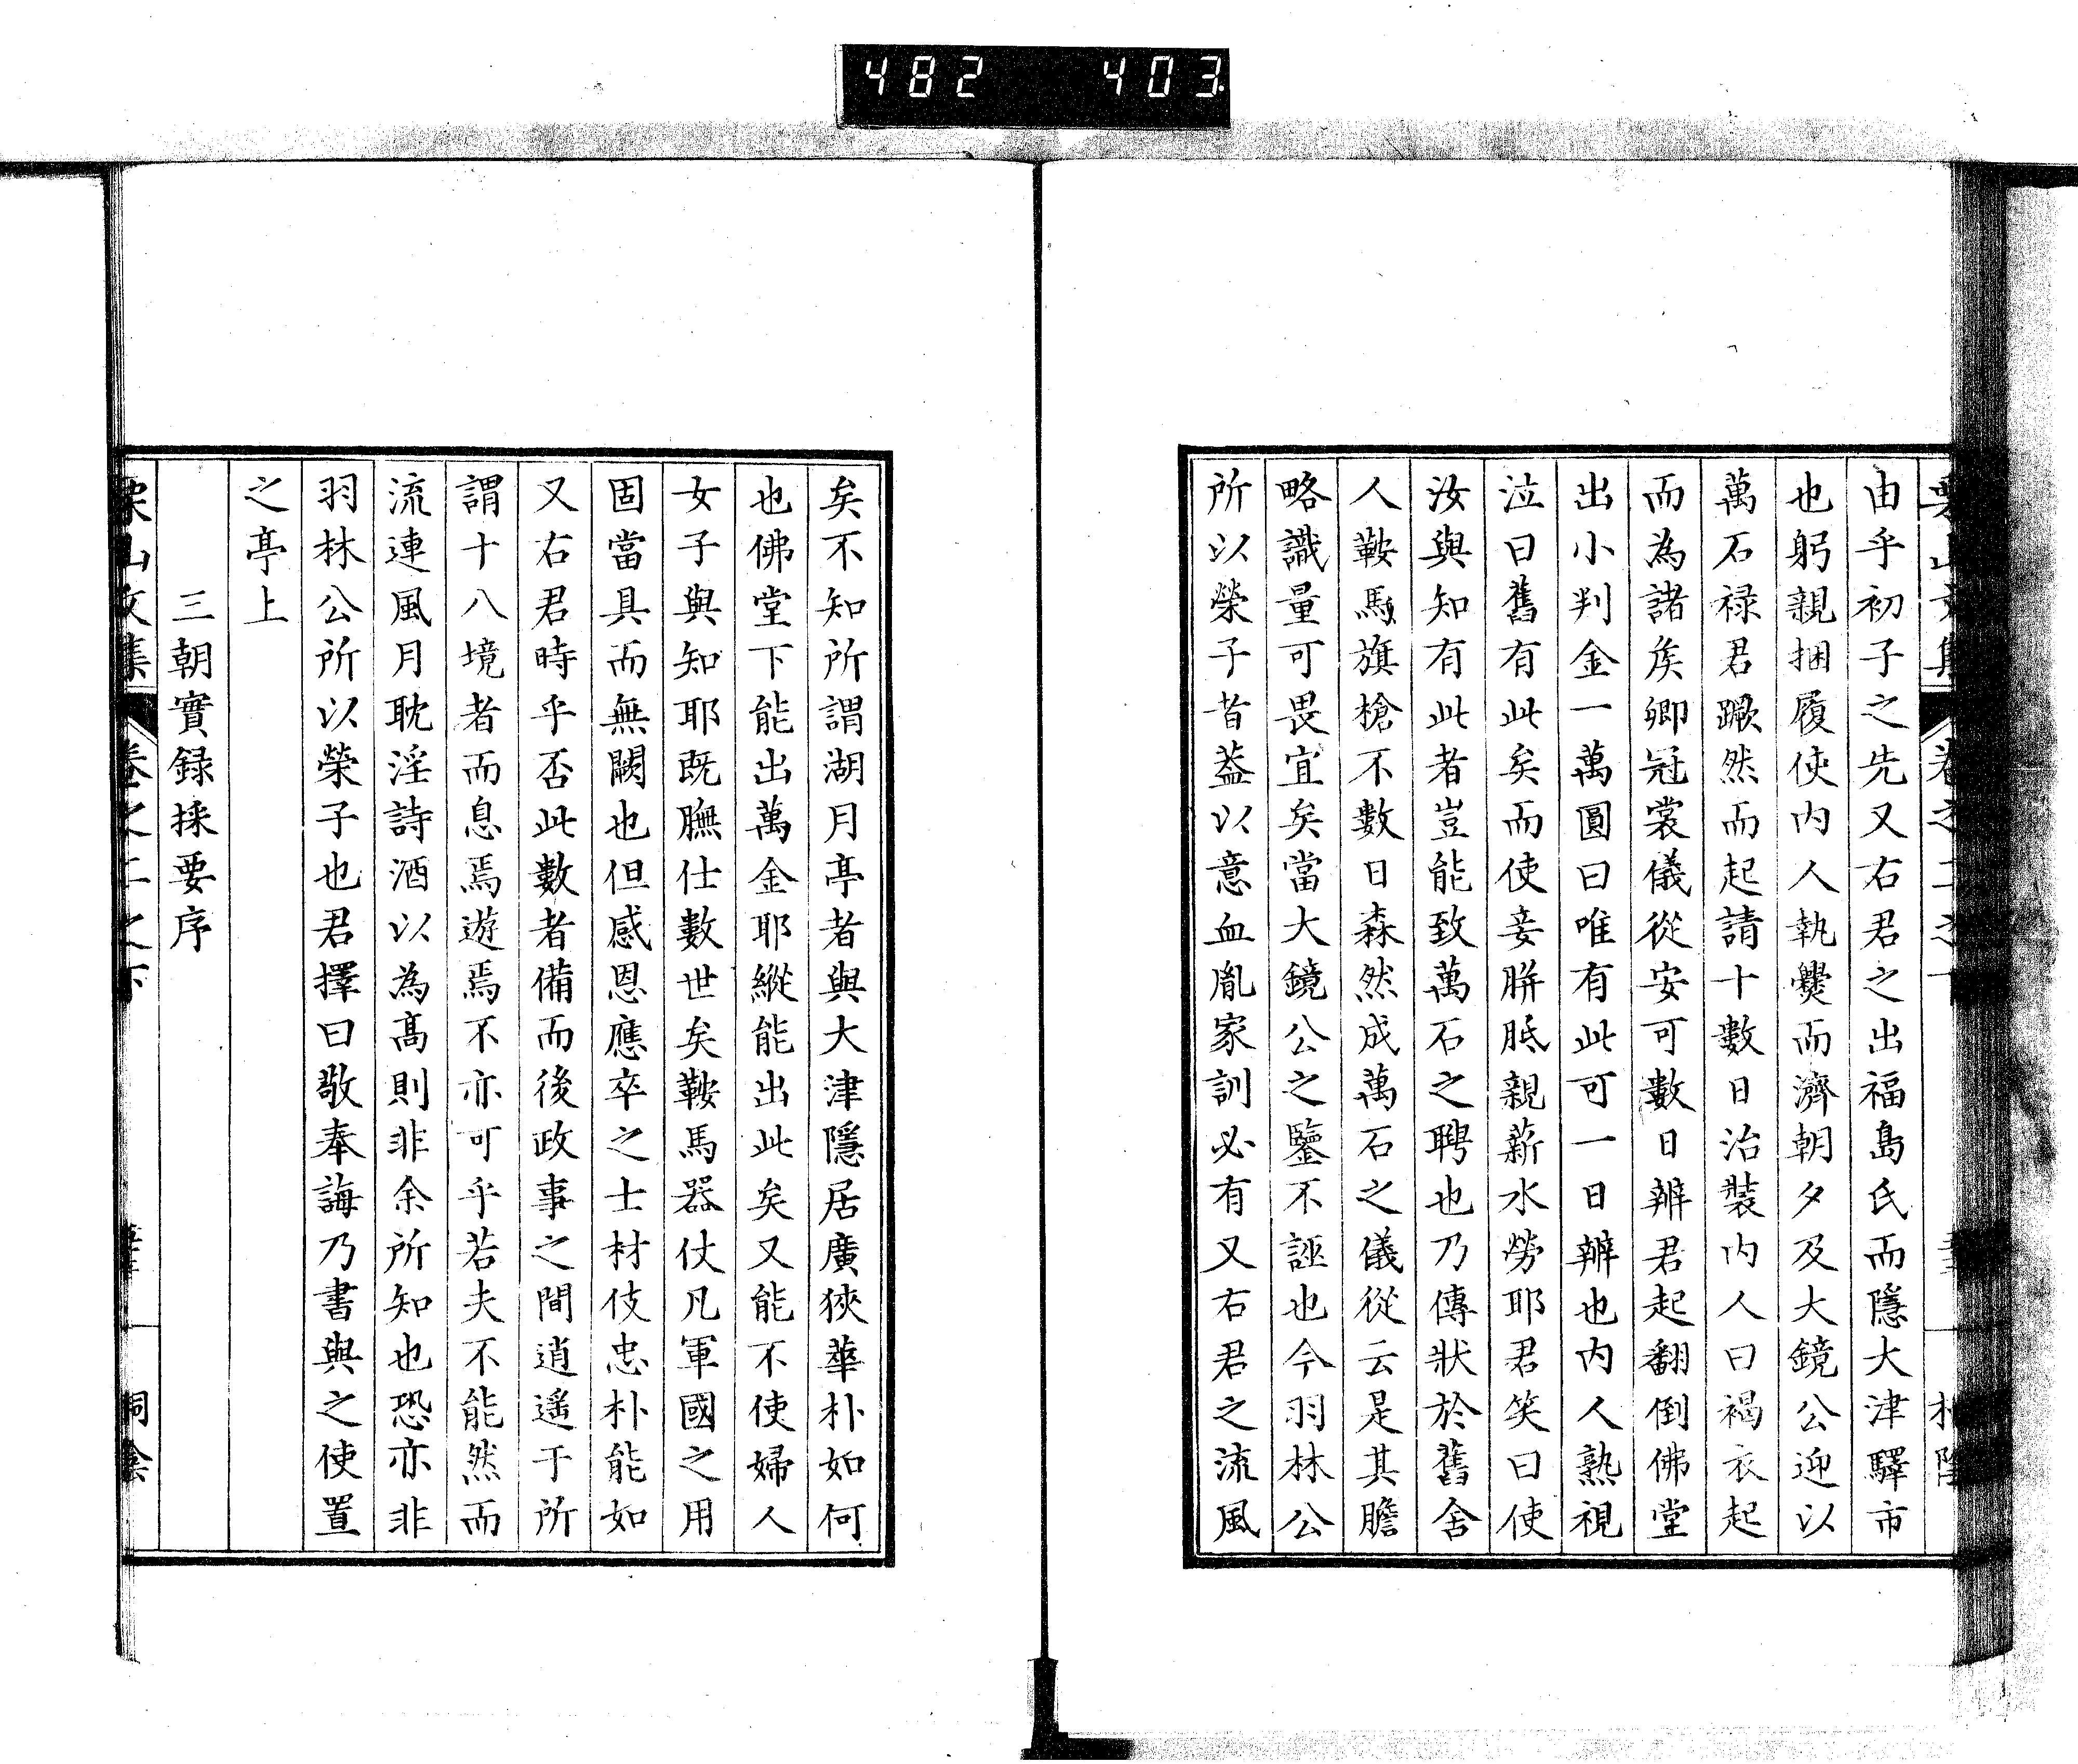 482 403
由乎初子之先又右君之出福島氏而隱大津驛市
也躬親捆履使内人執爨而濟朝夕及大鏡公迎以
萬石禄君蹶然而起請十數日治裝内人曰褐衣起
而為諸矦卿冠裳儀從安可數日辨君起翻倒佛堂
出小判金一萬圓曰唯有此可一日辨也内人熟視
泣曰舊有此矣而使妾胼胝親薪水勞耶君笑曰使
汝與知有此者豈能致萬石之聘也乃傳狀於舊舍
人鞍馬旗槍不數日森然成萬石之儀從云是其膽
略識量可畏宜矣當大鏡公之鑒不誣也今羽林公
所以榮子者葢以意血胤家訓必有又右君之流風
矣不知所謂湖月亭者與大津隱居廣狹華朴如何
也佛堂下能出萬金耶縱能出此矣又能不使婦人
女子與知耶既膴仕數世矣鞍馬器仗凡軍國之用
固當具而無闕也但感恩應卒之士材伎忠朴能如
又右君時乎否此數者備而後政事之間逍遙于所
謂十八境者而息焉遊焉不亦可乎若夫不能然而
流連風月耽淫詩酒以為高則非余所知也恐亦非
羽林公所以榮子也君擇曰敬奉誨乃書與之使置
之亭上
三朝實録採要序
山文集 卷之二之下
桐陰